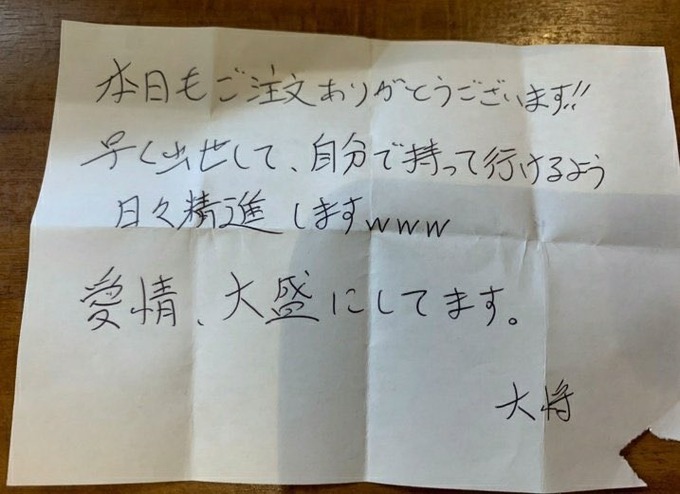 本日もご注文ありがとうございます!!
早く出世して、自分で持って行けるよう
日々精進しますwww
愛情、大盛にしてます。
大将